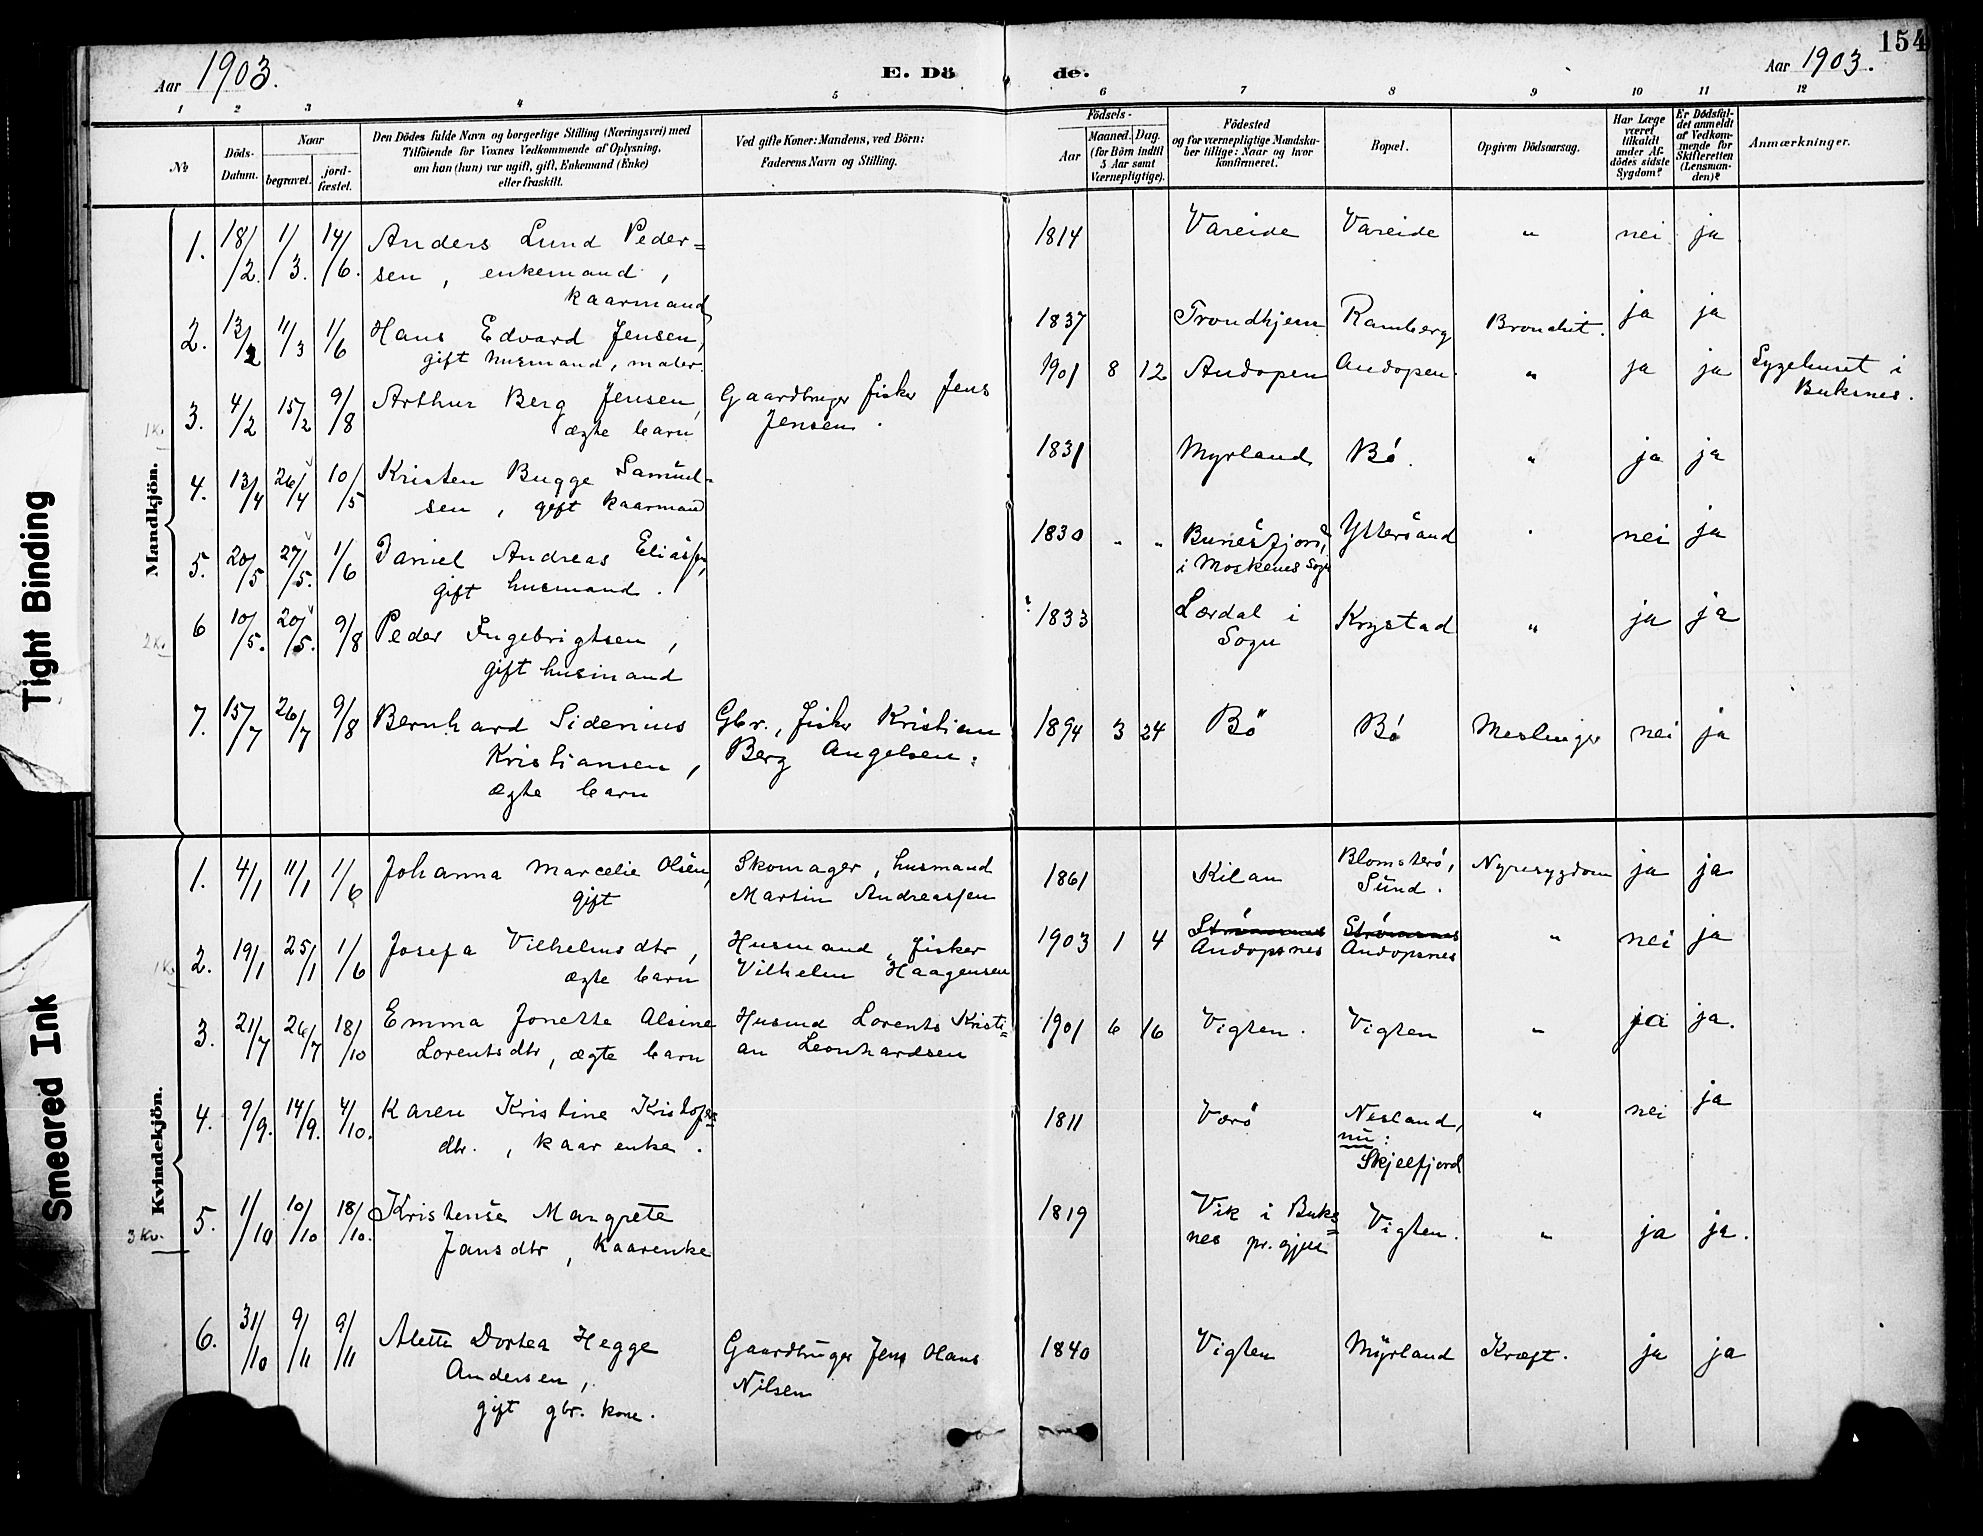 154
Aar 1903.
E. Dö de.
Aar 1903.
1 2 3 4 5 6 7 8 9 10 11 12
No
Döds-
Datum.
Naar
begravet.
jord-
fæstet.
Den Dödes fulde Navn og borgerlige Stilling (Næringsvei) med
Tilföiende for Voxnes Vedkommende af Oplysning,
om han (hun) var ugift, gift, Enkemand (Enke)
eller fraskilt.
Ved gifte Koner: Mandens, ved Börn:
Faderens Navn og Stilling.
Födsels-
Aar
Maaned. Dag.
(for Börn indtil
5 Aar samt
Værnepligtige).
Födested
og for værnepligtige Mandska-
ber tillige: Naar og hvor
konfirmeret.
Bopæl.
Opgiven Dödsaarsag.
Har Læge
været
tilkaldt
under Af-
dödes sidste
Sygdom?
Er Dödsfal-
det anmeldt
af Vedkom-
mende for
Skifteretten
(Lensman-
den)?
Anmærkninger.
Mandkjön.
1. 18/2. 1/3. 14/6. Anders Lund Peder=
sen, enkemand,
kaarmand
1814 Vareide Vareide " nei ja
2. 13/2 11/3 1/6 Hans Edvard Jensen,
gift husmand, maler.
1837 Trondhjem Ramberg Bronchit. ja ja
1 Kv.
3. 4/2 15/2 9/8 Arthur Berg Jensen,
ægte barn
Gaardbruger fisker Jens
Jensen.
1901 8 12 Andopen Andopen. " ja ja Sygehuset i
Buksnes.
4. 13/4 26/4 10/5 Kristen Bugge Samuel-
sen, gift kaarmand
1831 Myrland Bö. " ja ja
5. 20/5 27/5. 1/6 Daniel Andreas Eliassen,
gift husmand.
1830 " " Bunesfjord,
i Moskenes Sogn
Yttersand " nei ja
2 Kv.
6 10/5. 20/5. 9/8 Peder Ingebrigtsen,
gift husmand
? 1833 Lærdal i
Sogn
Krystad " ja ja
7. 15/7 26/7 9/8 Bernhard Siderius
Kristiansen,
ægte barn
Gbr., fisker Kristian
Berg Angelsen.
1894 3 24 Bö Bö Meslinger nei ja
Kvindekjön.
1. 4/1 11/1 1/6 Johanna Marcelie Olsen,
gift
Skomager, husmand
Martin Andreassen
1861 Kilan Blomsterö,
Sund.
Nyresygdom ja ja
1 Kv.
2. 19/1 25/1 1/6 Josefa Vilhelmsdtr,
ægte barn
Husmand, fisker
Vilhelm Haagensen
1903 1 4 Strömsnes Strömsnes
Andopsnes Andopsnes
" nei ja
3. 21/7 26/7 18/10 Emma Jonette Alsine
Lorentsdtr, ægte barn
Husmd Lorents Kristi=
an Leonhardsen
1901 6 16 Vigten. Vigten " ja ja.
4. 9/9. 14/9. 4/10. Karen Kristine Kristofers=
dtr., kaarenke.
1811 Værö Nesland,
nu:
Skjelfjord
" nei ja
3 Kv.
5. 1/10 10/10 18/10. Kristense Margrete
Jansdtr, Kaarenke
1819 Vik i Buks=
nes pr.gjeld
Vigten. " ja ja.
6. 31/10 9/11 9/11 Alette Dortea Hegge
Andersen,
gift gbr. kone.
Gaardbruger Jens Hans
Nilsen
1840 Vigten Myrland Kræft. ja ja
Tight Binding
Smeared Ink